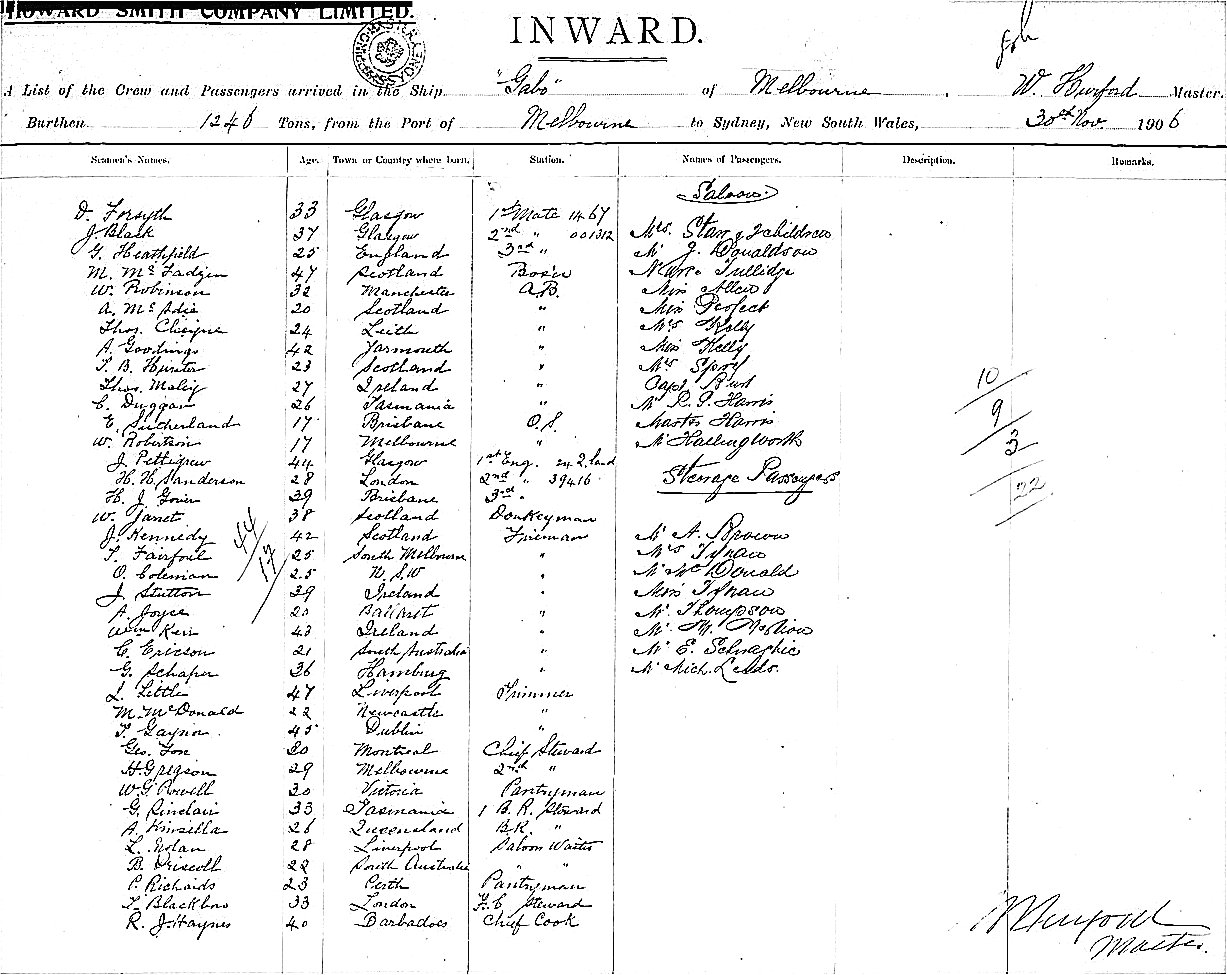 HOWARD SMITH COMPANY LIMITED.
INWARD.
A List of the Crew and Passengers arrived in the Ship "Gabo" of Melbourne, W. Hurford Master.
Burthen 1246 Tons, from the Port of Melbourne to Sydney, New South Wales, 30th Nov. 1906
Seamen's Names. Age. Town or Country where born. Station. Names of Passengers. Description. Remarks.
Saloon
D. Forsyth 33 Glasgow 1st Mate 1467
J Black 37 Glasgow 2nd " 001312 Mrs. Starr & children
G. Heathfield 25 England 3rd " Mr J. Donaldson
M. McFadzen 47 Scotland Bosn Tullidge
W. Robinson 32 Manchester A.B. Miss Allen
A. McAdie 20 Scotland " Miss Perfect
Thos. Cheyne 24 Leith " Mrs Kelly
A. Goodings 42 Yarmouth " Miss Kelly
T. B. Hunter 23 Scotland " Mrs Spry
Thos. Maley 27 Ireland " Capt. Burt
C. Duggan 26 Tasmania " Mr R. G. Harris
E. Sutherland 17 Brisbane O.S. Master Harris
W. Robertson 17 Melbourne " Mr Hallingwork
J. Pettigrew 44 Glasgow 1st Eng.
H. H. Sanderson 28 London 2nd " 39416 Steerage Passengers
H. J. 39 Bribane 3rd "
W. Janet 38 Scotland Donkeyman
J. Kennedy 42 Scotland Fireman Mr A. Brown
T. Fairfoil 25 South Melbourne " Mrs Tynan
O. Coleman 25 N.S.W " Mr McDonald
J. Stutton 39 Ireland " Miss Tynan
A. Joyce 20 Ballarat " Mr. Thompson
Wm Keir 43 Ireland " Mr. M.
C. Ericson 21 South Australia " Mr E.
G. Schaper 36 Hamburg " Mr Mich. Leeds.
J. Little 47 Liverpool Trimmer
M. McDonald 22 Newcastle "
T. Gaynor 45 Dublin "
Geo. Fox 30 Montreal Chief Steward
H. Gregson 29 Melbourne 2nd "
W. G. Powell 30 Victoria Pantryman
G. Sinclair 33 Tasmania 1 B. R. Steward
A. Kinsella 26 Queensland B.R. "
L. Nolan 28 Liverpool Saloon Waiter
B. Driscoll 22 South Australia " "
P. Richards 23 Perth Pantryman
T. Blackbow 33 London F.C Steward
R. J. Haynes 40 Barbadoes Chief Cook
44
17
10
9
3
22
W Hurford
Master.